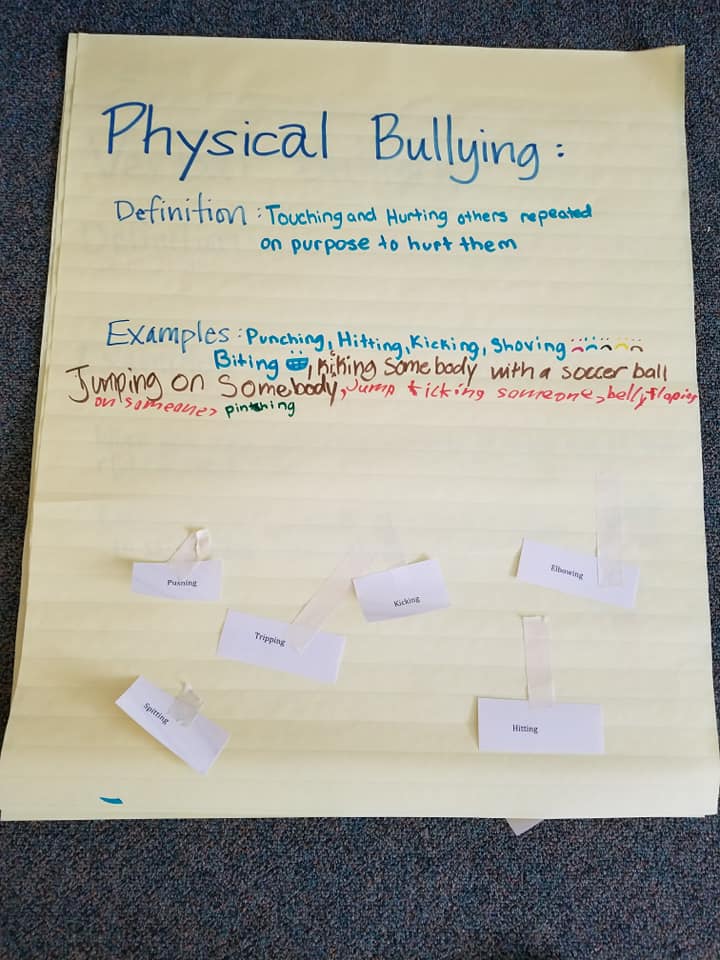 Physical Bullying:
Definition: Touching and Hurting others repeated
on purpose to hurt them
Examples: Punching, Hitting, Kicking, Shoving
Biting, Kiking Somebody with a soccer ball
Jumping on Somebody, Jump kicking someone, belly flopies
on someone, pintching
Pushing
Tripping
Kicking
Elbowing
Spitting
Hitting